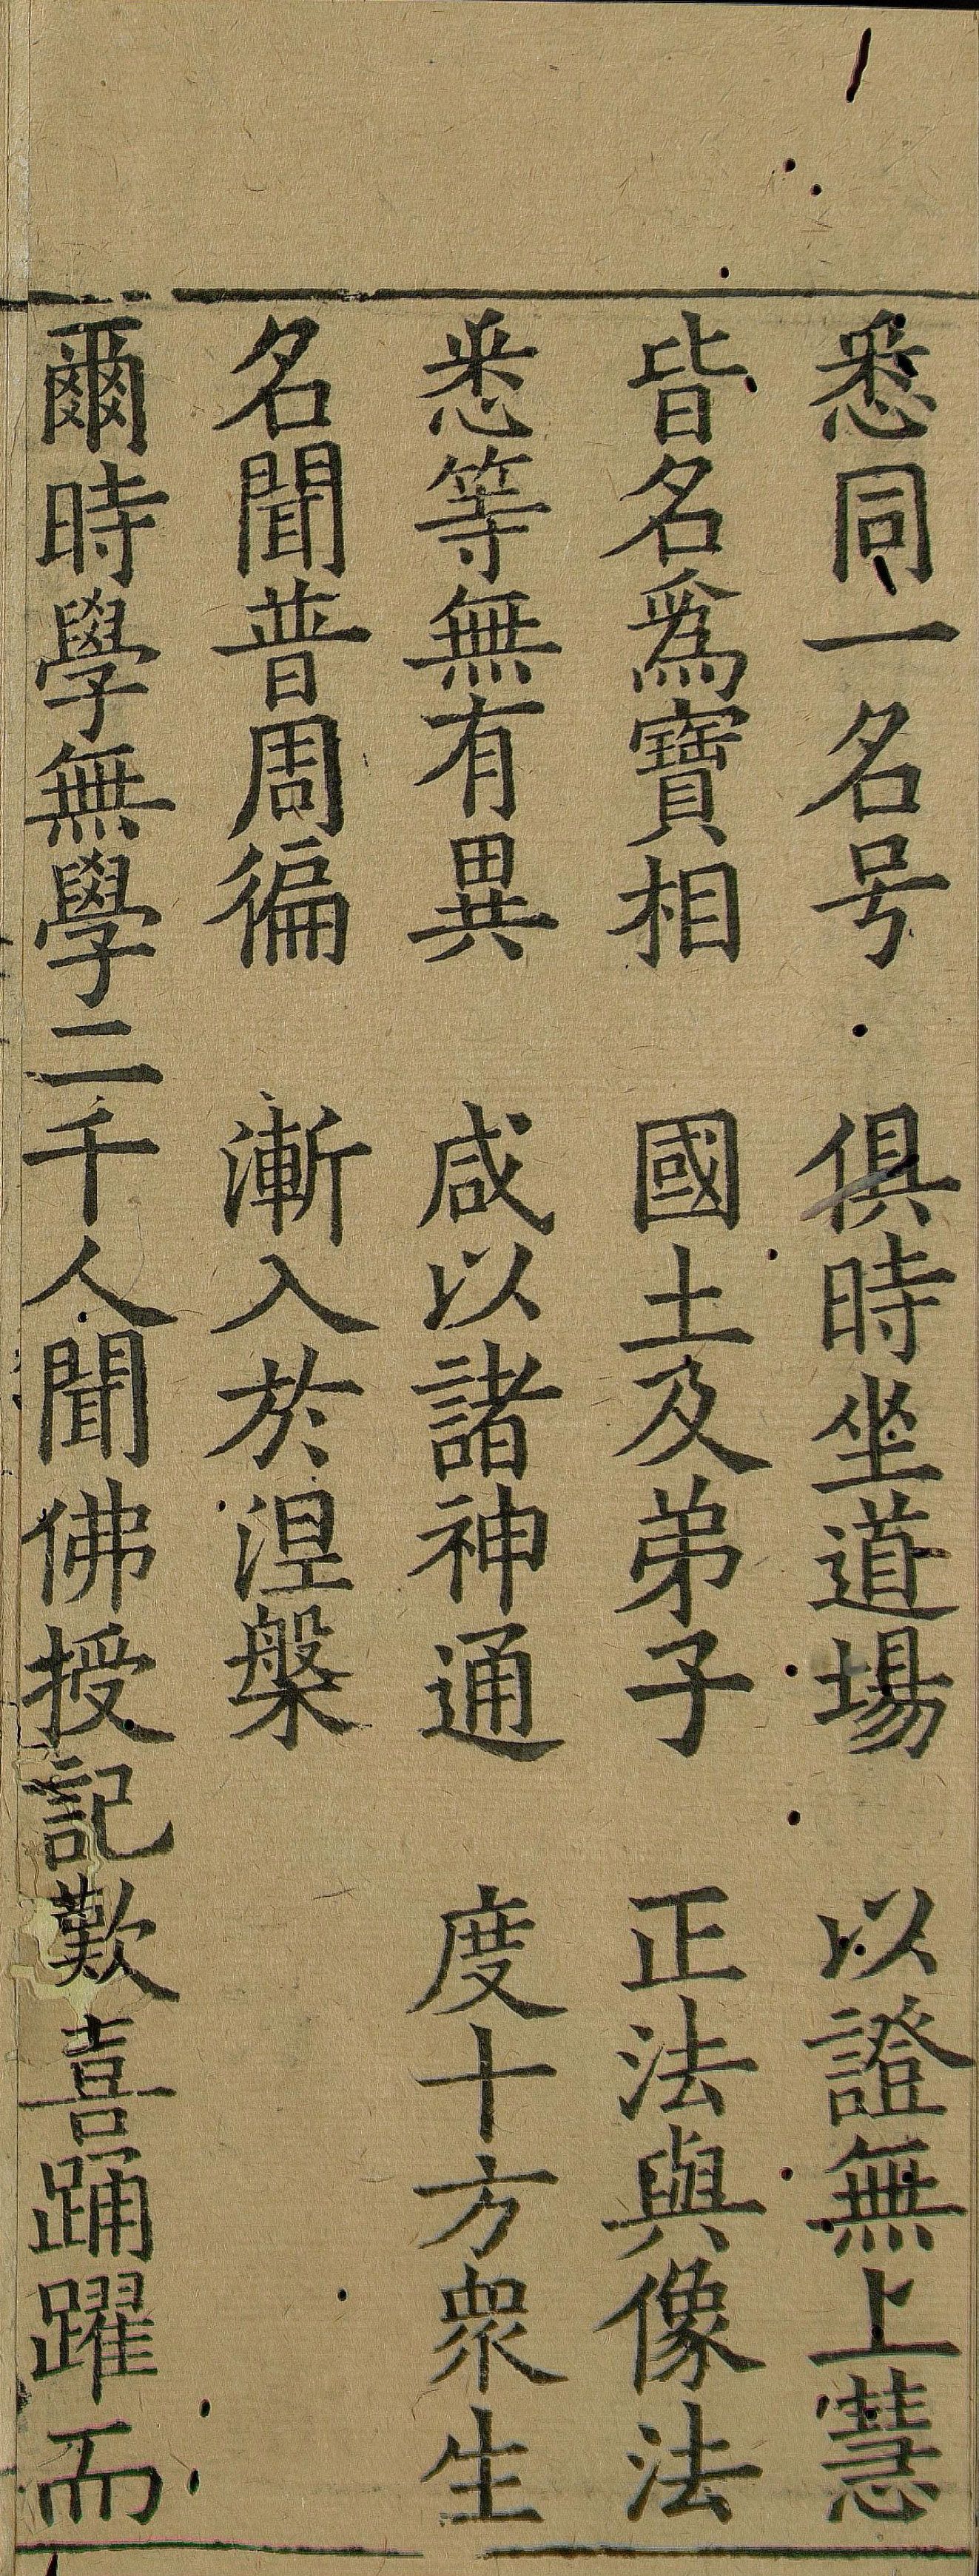 悉同一名号　俱時坐道場　以證無上慧
皆名爲寶相　國土及弟子　正法與像法
悉等無有異　咸以諸神通　度十方眾生
名聞普周徧　漸入於涅槃
爾時學無學二千人聞佛授記歡喜踊躍而